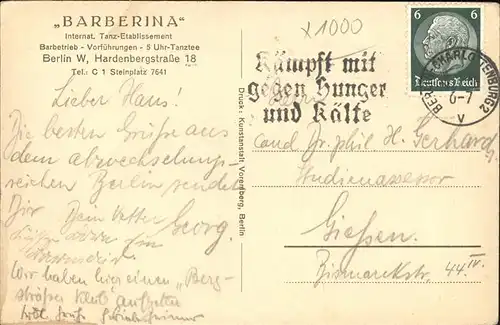 „BARBERINA“
Internat. Tanz-Etablissement
Barbetrieb - Vorführungen - 5 Uhr-Tanztee
Berlin W, Hardenbergstraße 18
Tel.: C 1 Steinplatz 7641
x 1000
6 6
Deutsches Reich
BERLIN-CHARLOTTENBURG 2
6-7
V
Kämpft mit
gegen Hunger
und Kälte
Lieber Hans!
Die besten Grüße aus
dem abwechslungs-
reichen Berlin sendet
Dir Dein Vetter Georg.
Wir haben hier einen „Berg-
sträßer Klub
Druck: Konstanstalt Vorenberg, Berlin
Herrn
cand. Dr. phil H. Gerhard
Studienassessor
Giessen.
Bismarckstr. 44 IV.